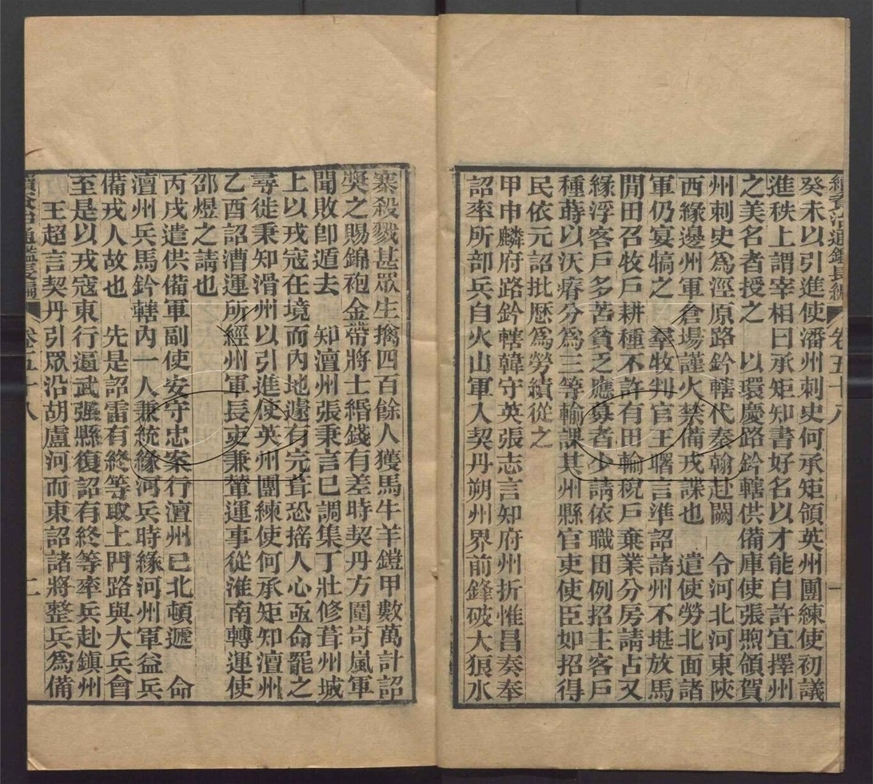 續資治通鑑長編 卷五十八 一
癸未以引進使潘州刺史何承矩領英州團練使初議
進秩上謂宰相曰承矩知書好名以才能自許宜擇州
之美名者授之 以環慶路鈐轄供備庫使張煦領賀
州刺史爲涇原路鈐轄代秦翰赴闕 令河北河東陝
西緣邊州軍倉場謹火禁備戎諜也 遣使勞北面諸
軍仍宴犒之 羣牧判官王曙言準詔諸州不堪放馬
閒田召牧戶耕種不許有田輸稅戶棄業分房請占又
緣浮客戶多苦貧乏應募者少請依職田例招主客戶
種蒔以沃瘠分爲三等輸課其州縣官吏使臣如招得
民依元詔批歷爲勞績從之
甲申麟府路鈐轄韓守英張志言知府州折惟昌奏奉
詔率所部兵自火山軍入契丹朔州界前鋒破大狼水
寨殺戮甚眾生擒四百餘人獲馬牛羊鎧甲數萬計詔
獎之賜錦袍金帶將士緡錢有差時契丹方圍岢嵐軍
聞敗卽遁去 知澶州張秉言已調集丁壯修葺州城
上以戎寇在境而內地遽有完葺恐搖人心亟命罷之
尋徙秉知滑州以引進使英州團練使何承矩知澶州
乙酉詔漕運所經州軍長吏兼輦運事從淮南轉運使
邵煜之請也
丙戌遣供備軍副使安守忠案行澶州已北頓遞 命
澶州兵馬鈐轄內一人兼統緣河兵時緣河州軍益兵
備戎人故也 先是詔雷有終等取土門路與大兵會
至是以戎寇東行逼武强縣復詔有終等率兵赴鎮州
王超言契丹引眾沿胡盧河而東詔諸將整兵爲備
續資治通鑑長編 卷五十八 二